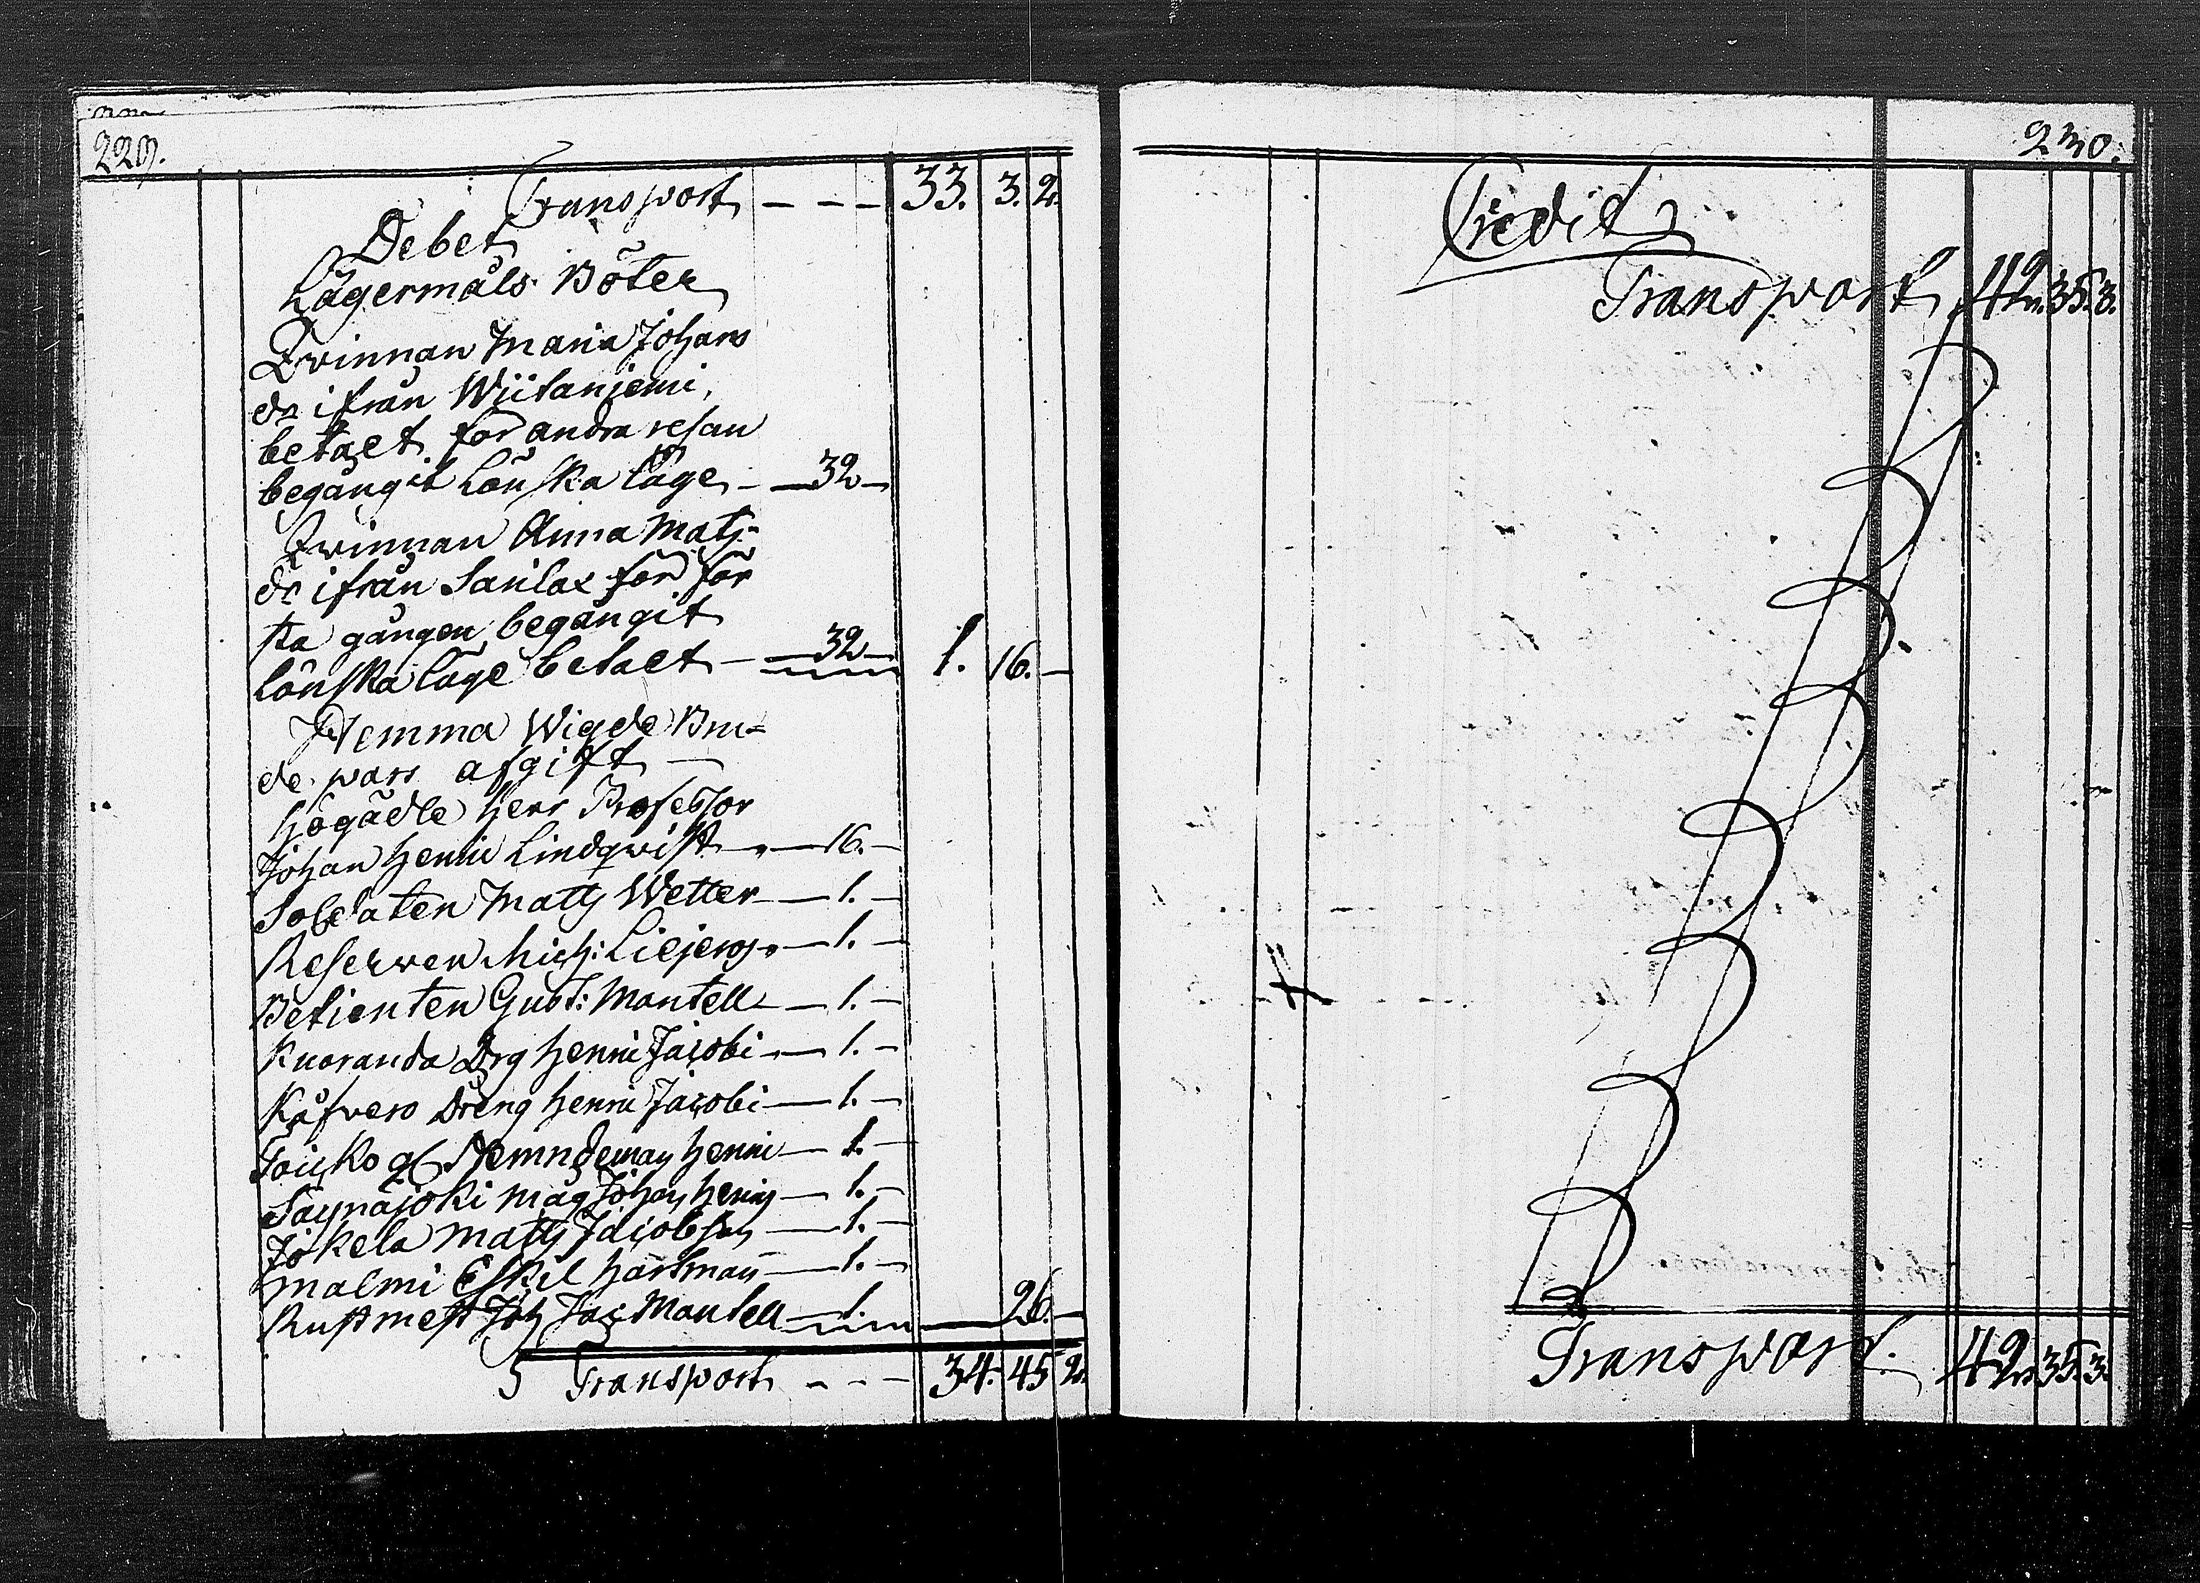 229.
Transport - - - 33. 3. 2.
Debet
Lägermåls Böter
Qvinnan Maria Johans
dr ifrån Wiitaniemi,
betalt för andra resan
begångit Lönskaläge - 32 -
Qvinnan Anna Matts-
dr ifrån Sarilax för för
sta gången begångit
Lönskaläge betalt - 32 - 1. 16. -
Hemma Wigde Bru-
de pars afgift -
Högädle Herr Professor
Johan Henric Lindqwist - 16. -
Soldaten Matts Wetter - 1. -
Reserven Mich: - 1. -
Betienten Gust: Mantell - 1. -
Kuoranda Drg Henric Jacobi - 1. -
Kåfvero Dreng Henric Jacobi - 1. -
Nemndeman Henric - 1. -
Säynäjoki Måg Johan Henrics - 1. -
Jokela Matts Jacobsson - 1. -
Malmi Eskil Hartman - 1. -
Rustmest Joh Jac Mantell - 1. - 26. -
Transport - - - 34. 45 2.
230.
Credit
Transport 42. 35. 3.
Transport. 42. 35. 3.